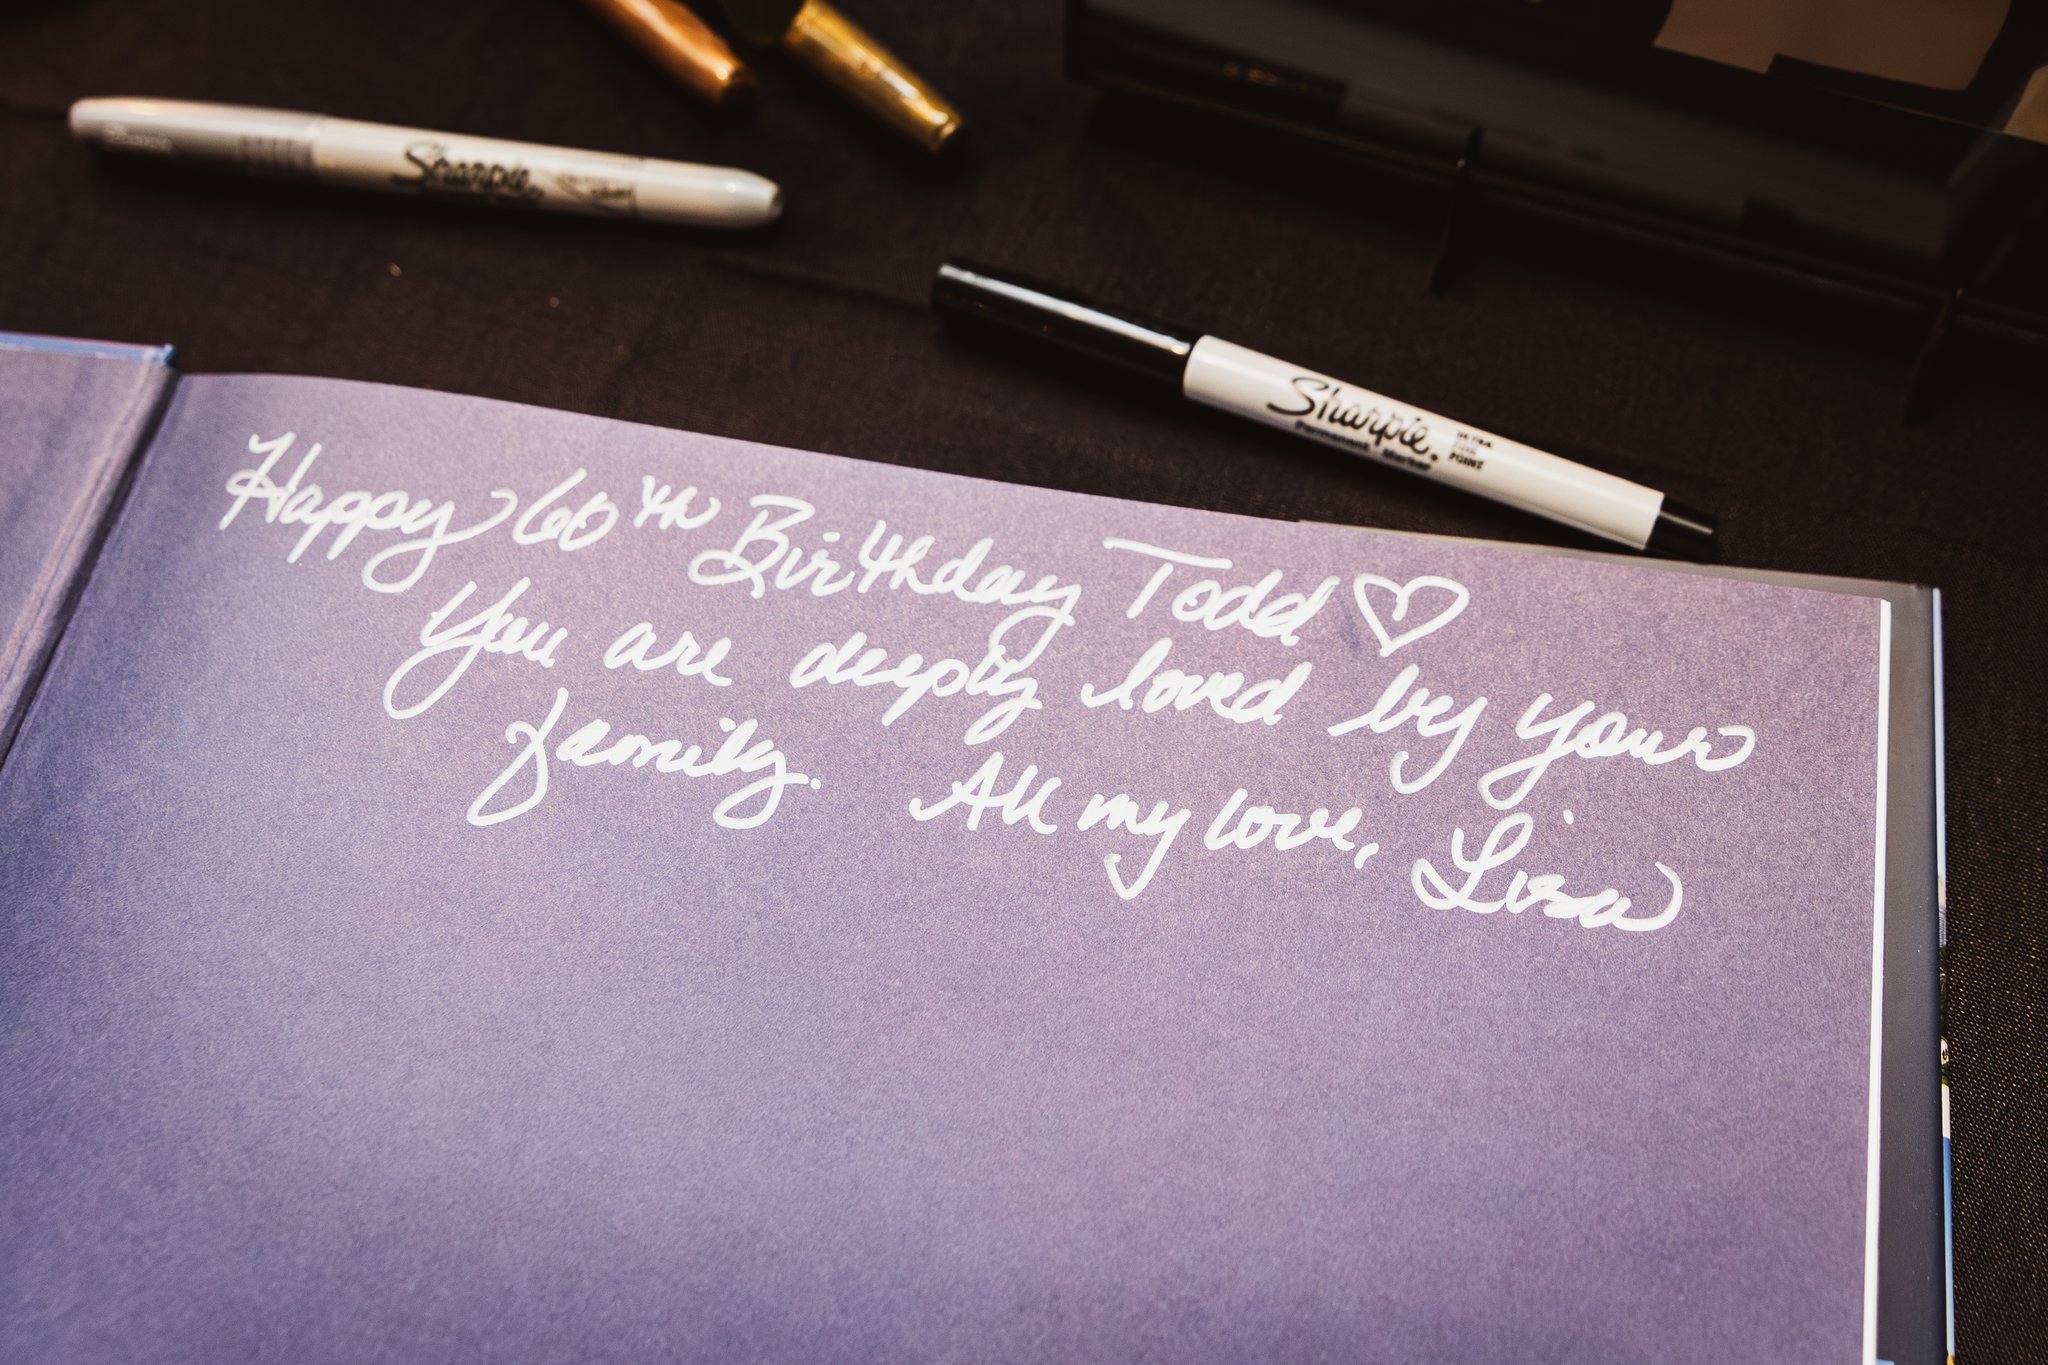 Sharpie.
Sharpie.
Permanent Marker
ULTRA
FINE
POINT
Happy 60th Birthday Todd ♡
You are deeply loved by your
family. All my love, Lisa